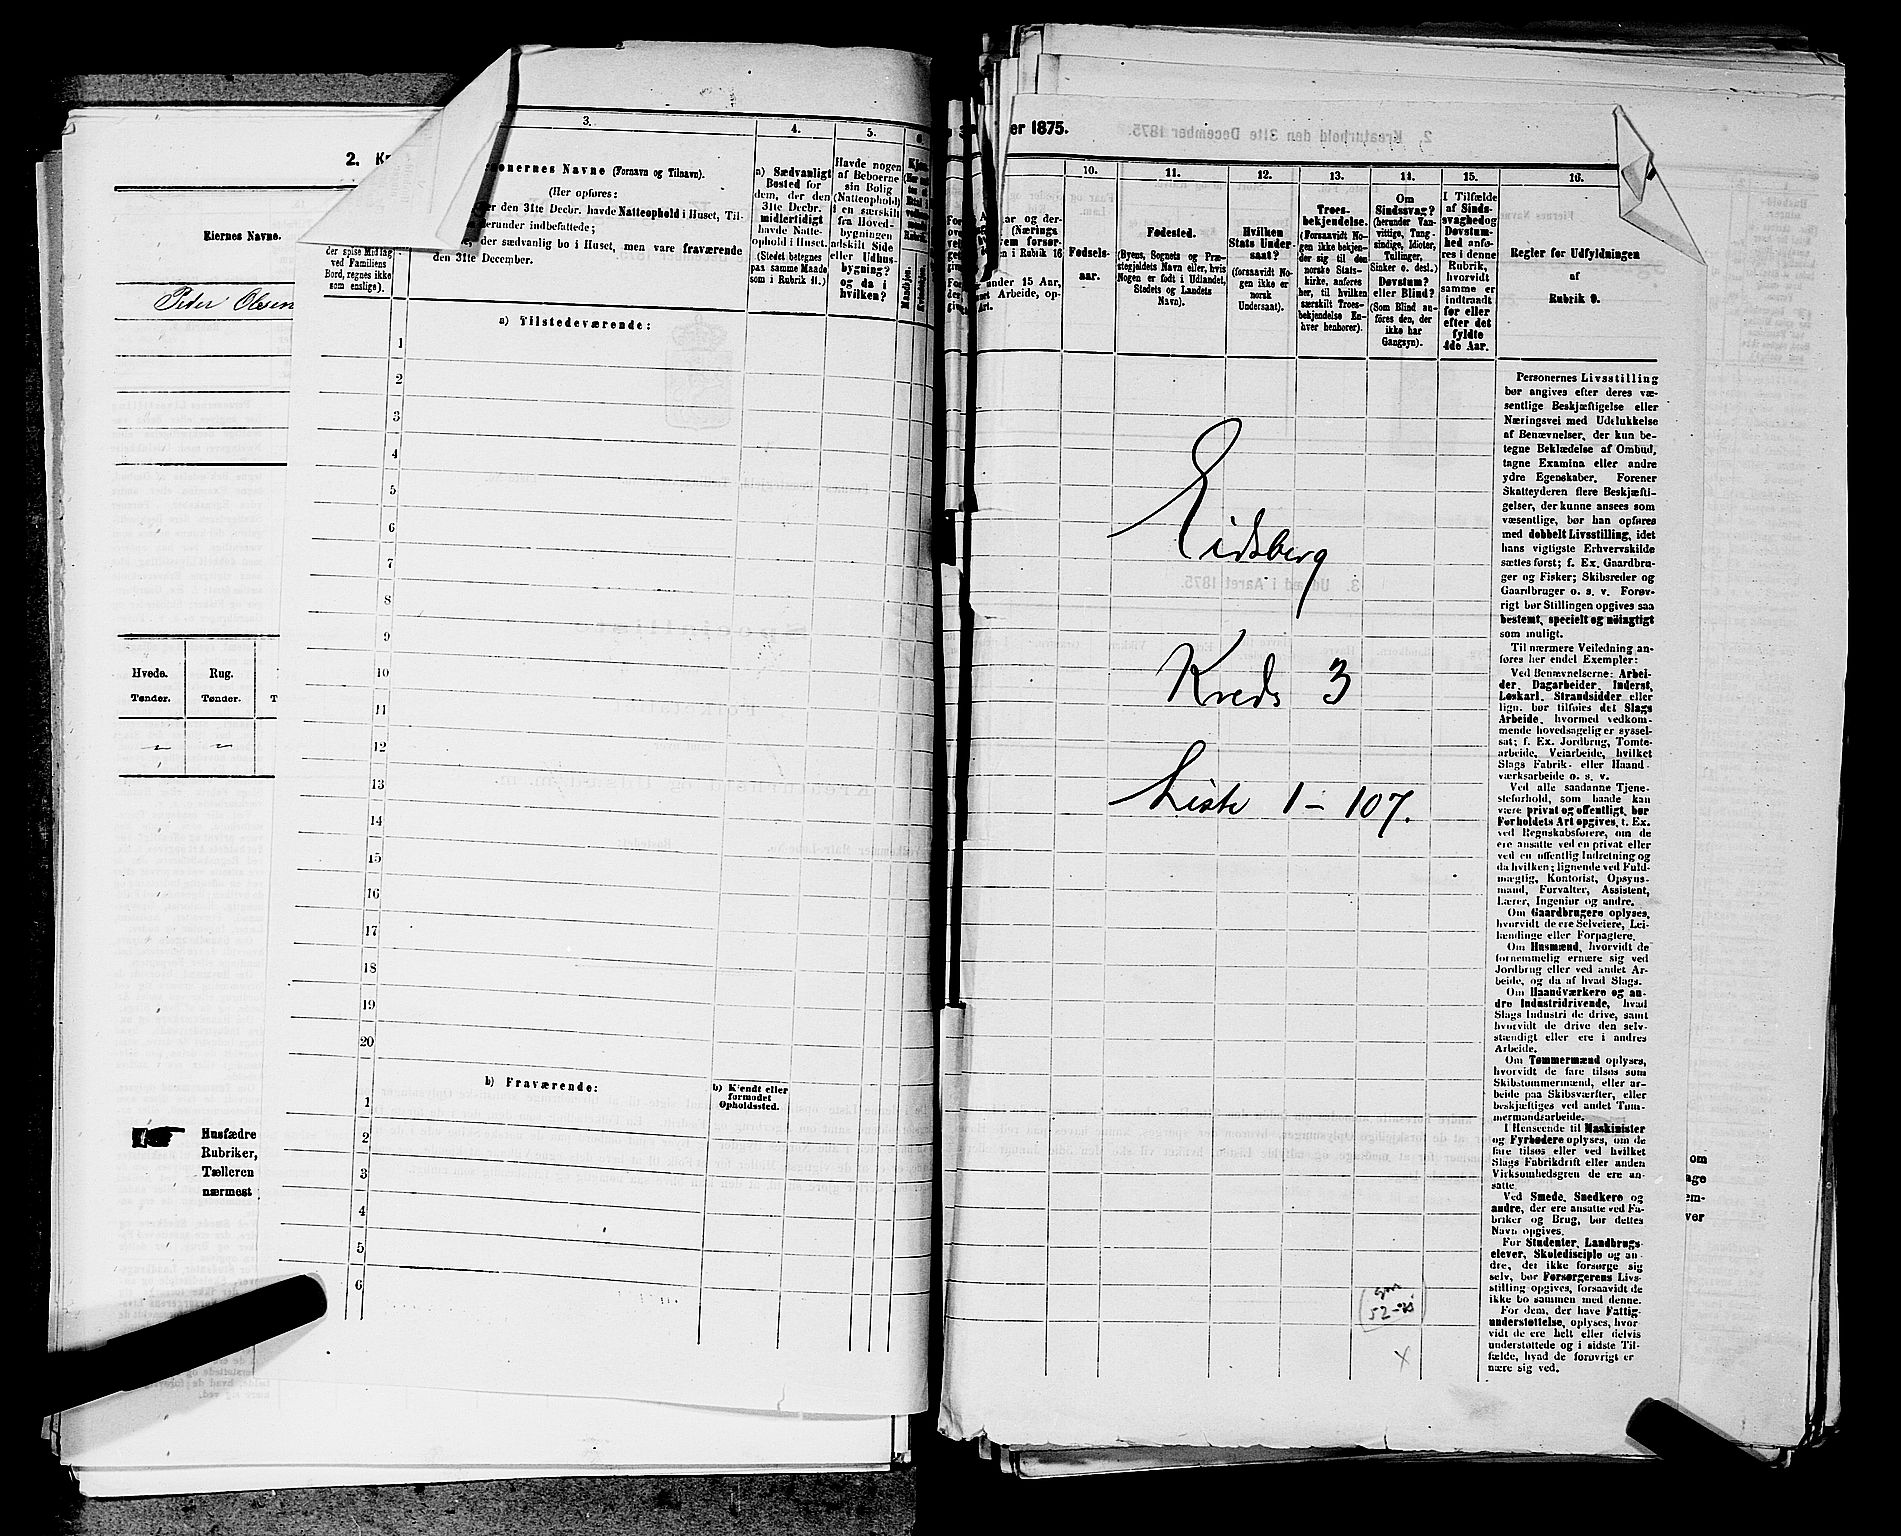 2. Kr
Eiernes Navne.
Peter Olesen
Hvede.
Tønder.
Rug.
Tønder.
T
Husfædre
Rubriker,
Tælleren
nærmest
der spise Middag
ved Familiens
Bord, regnes ikke
som enslige).
3.
sonernes Navne (Fornavn og Tilnavn).
(Her opføres:
er den 31te Decbr. havde Natteophold i Huset, Til-
herunder indbefattede;
der sædvanlig bo i Huset, men vare fraværende
den 31te December.
4.
a) Sædvanligt
Bosted for
dem, der den
31te Decbr.
midlertidigt
havde Natte-
ophold i Huset.
(Stedet betegnes
paa samme Maade
som i Rubrik 11.)
5.
Havde nogen
af Beboerne
sin Bolig
(Natteophold)
i en særskilt
fra Hoved-
bygningen
adskilt Side
eller Udhus-
bygning?
og da i
hvilken?
6.
a) Tilstedeværende:
1
2
3
4
5
6
7
8
9
10
11
12
13
14
15
16
17
18
19
20
b) Fraværende:
b) Kjendt eller
formodet
Opholdssted.
1
2
3
4
5
6
er 1875.
10.
Fødsels-
aar.
11.
Fødested.
(Byens, Sognets og Præ-
stegjeldets Navn eller, hvis
Nogen er født i Udlandet,
Stedets og Landets
Navn).
12.
Hvilken
Stats Under-
saat?
(forsaavidt No-
gen ikke er
norsk
Undersaat).
13.
Troes-
bekjendelse.
(Forsaavidt No-
gen ikke bekjen-
der sig til den
norske Stats-
kirke, anføres
her, til hvilken
særskilt Troes-
bekjendelse En-
hver henhører).
14.
Om
Sindssvag?
(herunder Van-
vittige, Tung-
sindige, Idioter,
Tullinger,
Sinker o. desl.)
Døvstum?
eller Blind?
(Som Blind an-
føres den, der
ikke har
Gangsyn).
15.
I Tilfælde
af Sinds-
svaghed og
Døvstum-
hed anfø-
res i denne
Rubrik,
hvorvidt
samme er
indtraadt
før eller
efter det
fyldte
4de Aar.
16.
Regler for Udfyldningen
af
Rubrik 9.
Eidsberg
Kreds 3
Liste 1 – 107.
Personernes Livsstilling
bør angives efter deres væ-
sentlige Beskjæftigelse eller
Næringsvei med Udelukkelse
af Benævnelser, der kun be-
tegne Beklædelse af Ombud,
tagne Examina eller andre
ydre Egenskaber. Forener
Skatteyderen flere Beskjæfti-
gelser, der kunne ansees som
væsentlige, bør han opføres
med dobbelt Livsstilling, idet
hans vigtigste Erhvervskilde
sættes først; f. Ex. Gaardbru-
ger og Fisker; Skibsreder og
Gaardbruger o. s. v. Forøv-
rigt bør Stillingen opgives saa
bestemt, specielt og nöiagtigt
som muligt.
Til nærmere Veiledning an-
føres her endel Exempler:
Ved Benævnelserne: Arbei-
der, Dagarbeider, Inderst,
Løskarl, Strandsidder eller
lign. bør tilføies det Slags
Arbeide, hvormed vedkom-
mende hovedsagelig er syssel-
sat; f. Ex. Jordbrug, Tomte-
arbeide, Veiarbeide, hvilket
Slags Fabrik- eller Haand-
værksarbeide o. s. v.
Ved alle saadanne Tjene-
steforhold, som baade kan
være privat og offentligt, bør
Forholdets Art opgives, t. Ex.
ved Regnskabsførere, om de
ere ansatte ved en privat eller
ved en offentlig Indretning og
da hvilken; lignende ved Fuld-
mægtig, Kontorist, Opsyns-
mand, Forvalter, Assistent,
Lærer, Ingeniør og andre.
Om Gaardbrugere oplyses,
hvorvidt de ere Selveiere, Lei-
lændinge eller Forpagtere.
Om Husmænd, hvorvidt de
fornemmelig ernære sig ved
Jordbrug eller ved andet Ar-
beide, og da af hvad Slags.
Om Haandværkere og an-
dre Industridrivende, hvad
Slags Industri de drive, samt
hvorvidt de drive den selv-
stændigt eller ere i andres
Arbeide.
Om Tømmermænd oplyses,
hvorvidt de fare tilsøs som
Skibstømmermænd, eller ar-
beide paa Skibsværfter, eller
beskjæftiges ved andet Tøm-
mermandsarbeide.
I Henseende til Maskinister
og Fyrbødere oplyses, om de
fare tilsøs eller ved hvilket
Slags Fabrikdrift eller anden
Virksomhedsgren de ere an-
satte.
Ved Smede, Snedkere og
andre, der ere ansatte ved Fa-
briker og Brug, bør dettes
Navn opgives.
For Studenter, Landbrugs-
elever, Skoledisciple og an-
dre, der ikke forsørge sig
selv, bør Forsørgerens Livs-
stilling opgives, forsaavidt de
ikke bo sammen med denne.
For dem, der have Fattig-
understøttelse, oplyses, hvor-
vidt de ere helt eller delvis
understøttede og i sidste Til-
fælde, hvad de forøvrigt er-
nære sig ved.